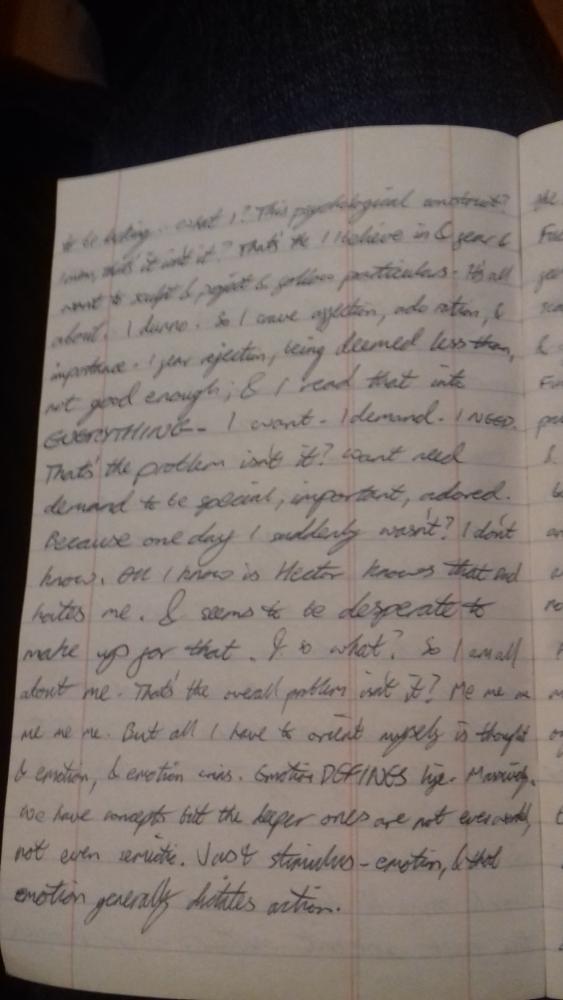 to be hiding. What I? This psychological construct?
I mean, that's it isn't it? That's the I I believe in & fear &
want to sculpt & project & particulars. It's all
about. I dunno. So I crave affection, adoration, &
importance. I fear rejection, being deemed less than,
not good enough; & I read that into
EVERYTHING. I want. I demand. I NEED.
That's the problem isn't it? want need
demand to be special, important, adored.
Because one day I suddenly wasn't? I don't
know. All I know is Hector knows that and
hates me. & seems to be desperate to
make up for that. & is what? So I am all
about me. That's the overall problem isn't it? Me me me
me me me. But all I have to orient myself is thought
& emotion, & emotion wins. Emotion DEFINES life. Massively.
We have concepts but the deeper ones are not even words,
not even semiotic. Just stimulus-emotion, & that
emotion generally dictates action.